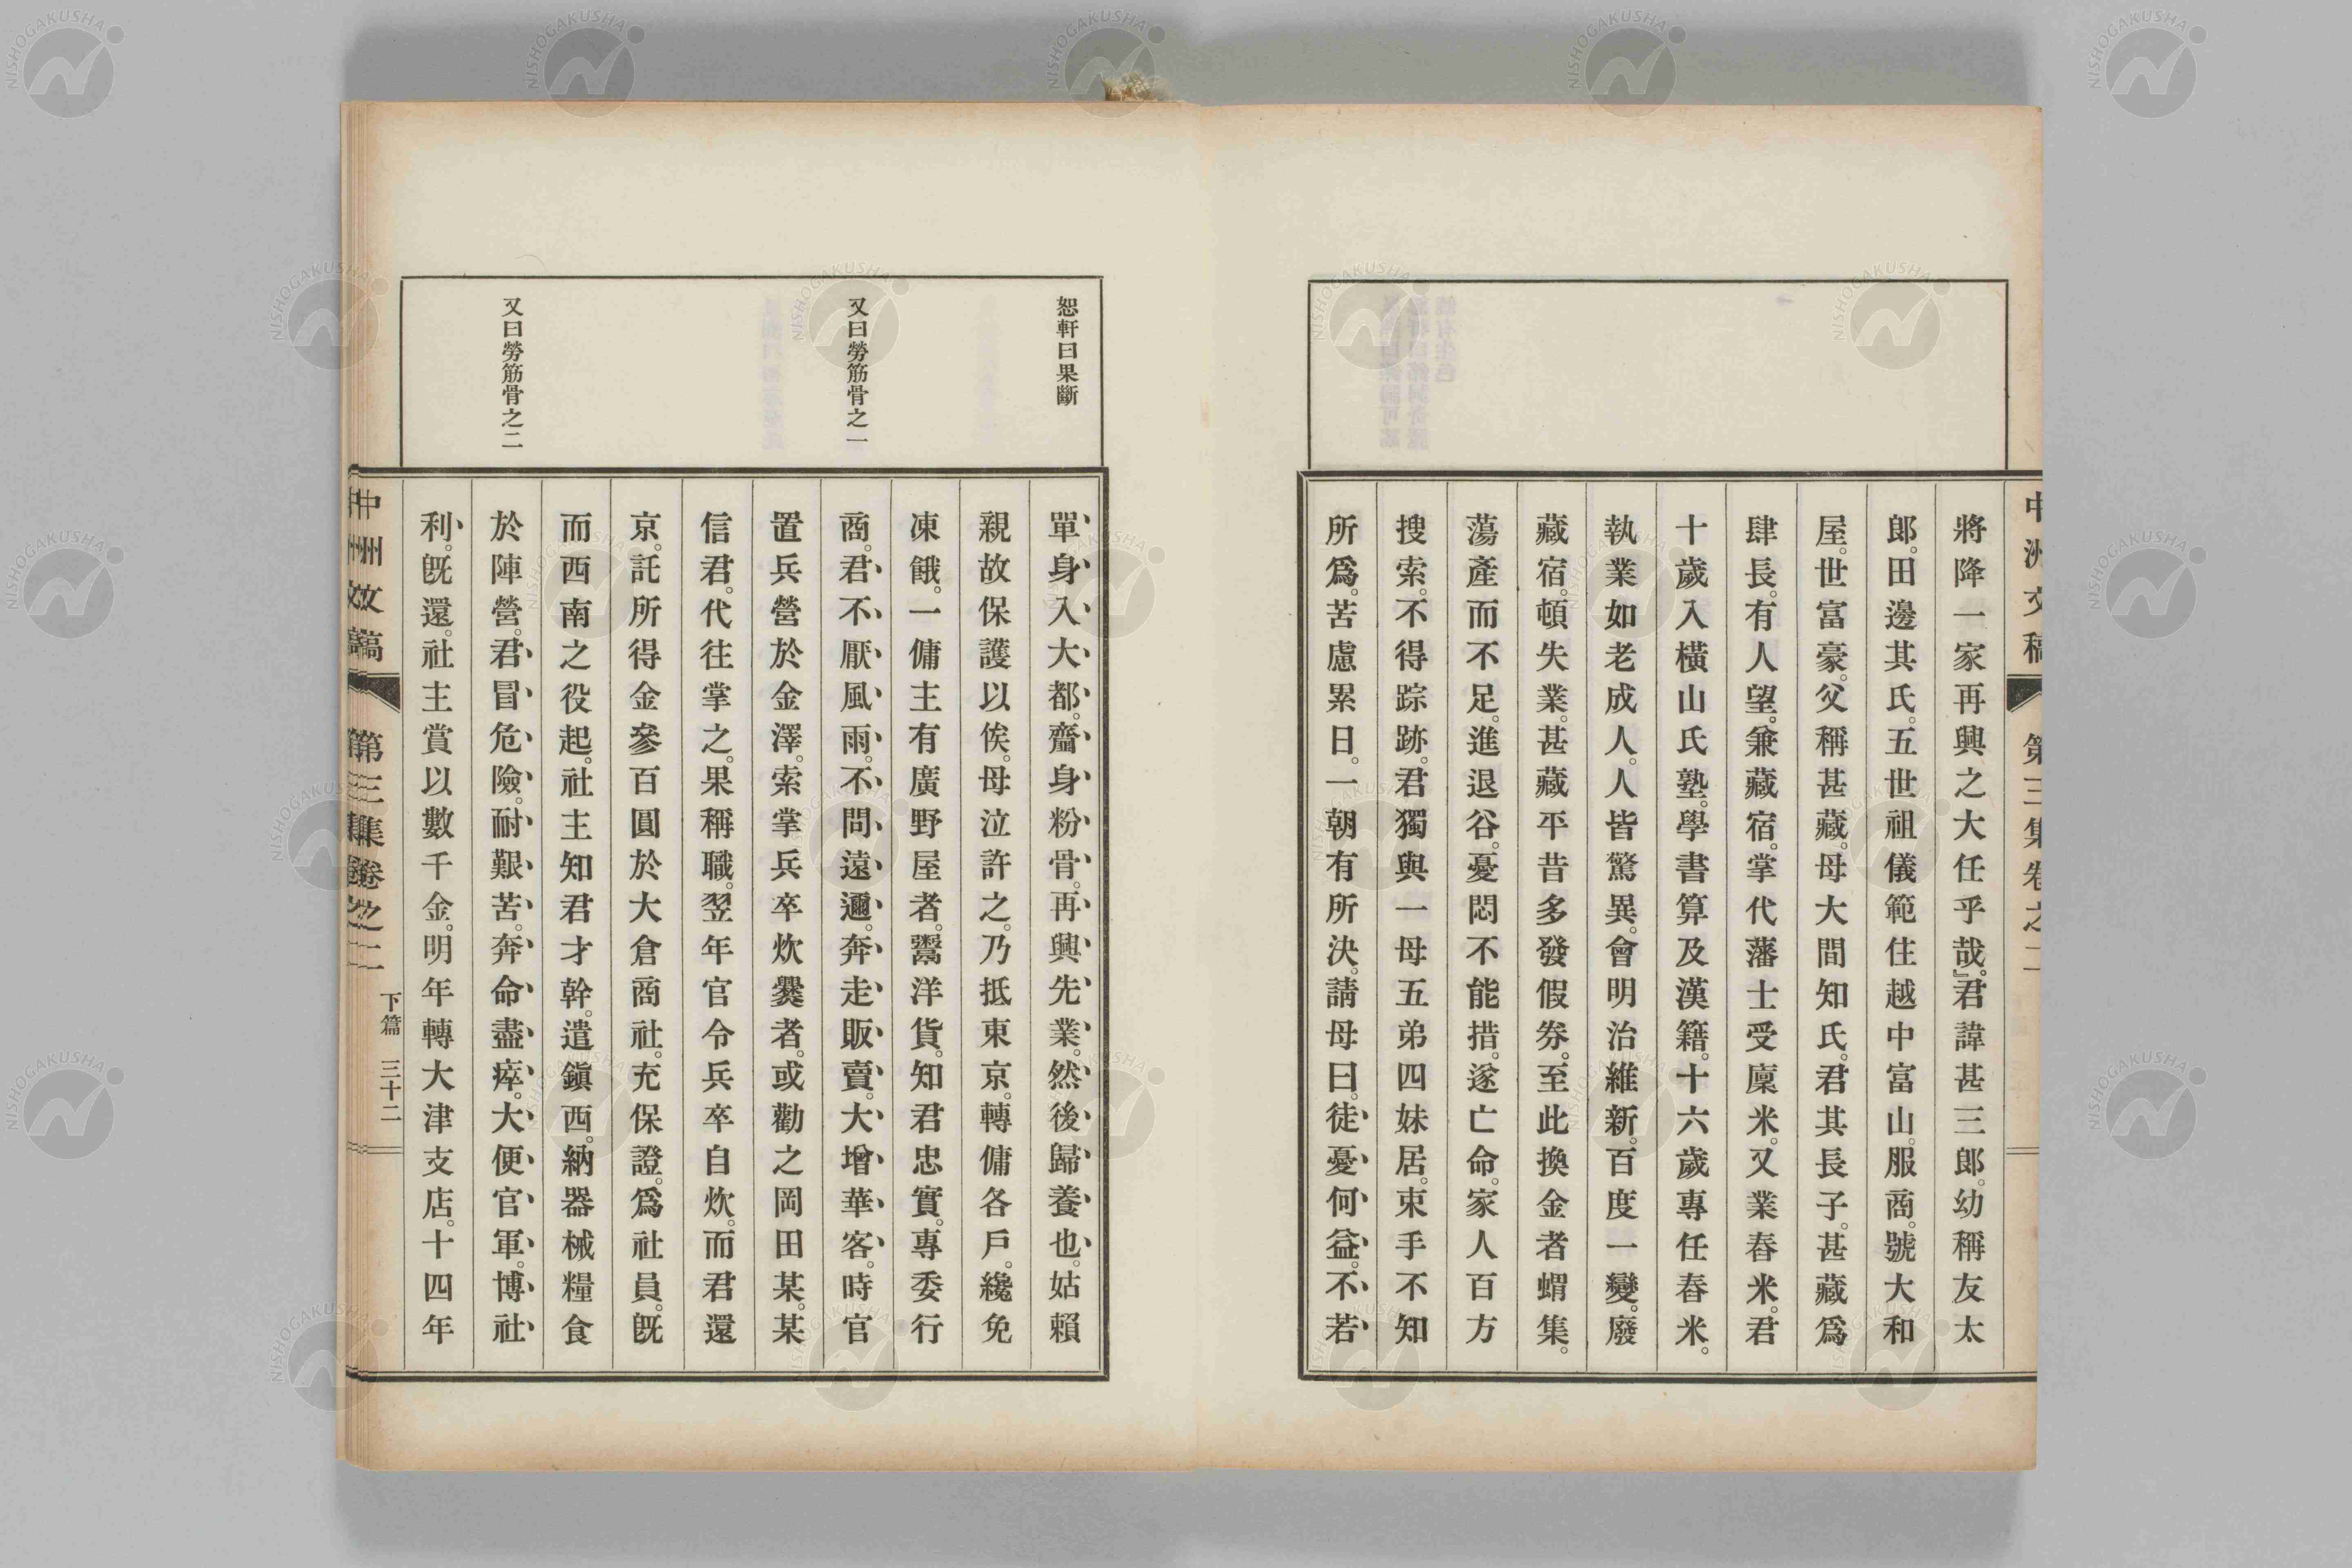 中洲文稿 第三集卷之二
將降一家再興之大任乎哉。』君諱甚三郎。幼稱友太
郎。田邊其氏。五世祖儀範住越中富山。服商。號大和
屋。世富豪。父稱甚藏。母大間知氏。君其長子。甚藏爲
肆長。有人望。兼藏宿。掌代藩士受廩米。又業舂米。君
十歲入橫山氏塾。學書算及漢籍。十六歲專任舂米。
執業如老成人。人皆驚異。會明治維新。百度一變。廢
藏宿。頓失業。甚藏平昔多發假券。至此換金者蝟集。
蕩產而不足。進退谷。憂悶不能措。遂亡命。家人百方
搜索。不得踪跡。君獨與一母五弟四妹居。束手不知
所爲。苦慮累日。一朝有所決。請母曰。徒憂何益。不若
恕軒曰果斷
單身入大都。齏身粉骨。再興先業。然後歸養也。姑賴
親故保護以俟。母泣許之。乃抵東京。轉傭各戶。纔免
凍餓。一傭主有廣野屋者。鬻洋貨。知君忠實。專委行
又曰勞筋骨之一
商。君不厭風雨。不問遠邇。奔走販賣。大增華客。時官
置兵營於金澤。索掌兵卒炊爨者。或勸之岡田某。某
信君。代往掌之。果稱職。翌年官令兵卒自炊。而君還
京。託所得金參百圓於大倉商社。充保證。爲社員。旣
而西南之役起。社主知君才幹。遣鎭西。納器械糧食
又曰勞筋骨之二
於陣營。君冒危險。耐艱苦。奔命盡瘁。大便官軍。博社
利。旣還。社主賞以數千金。明年轉大津支店。十四年
中洲文稿 第三集卷之二 下篇 三十二
NISHOGAKUSHA